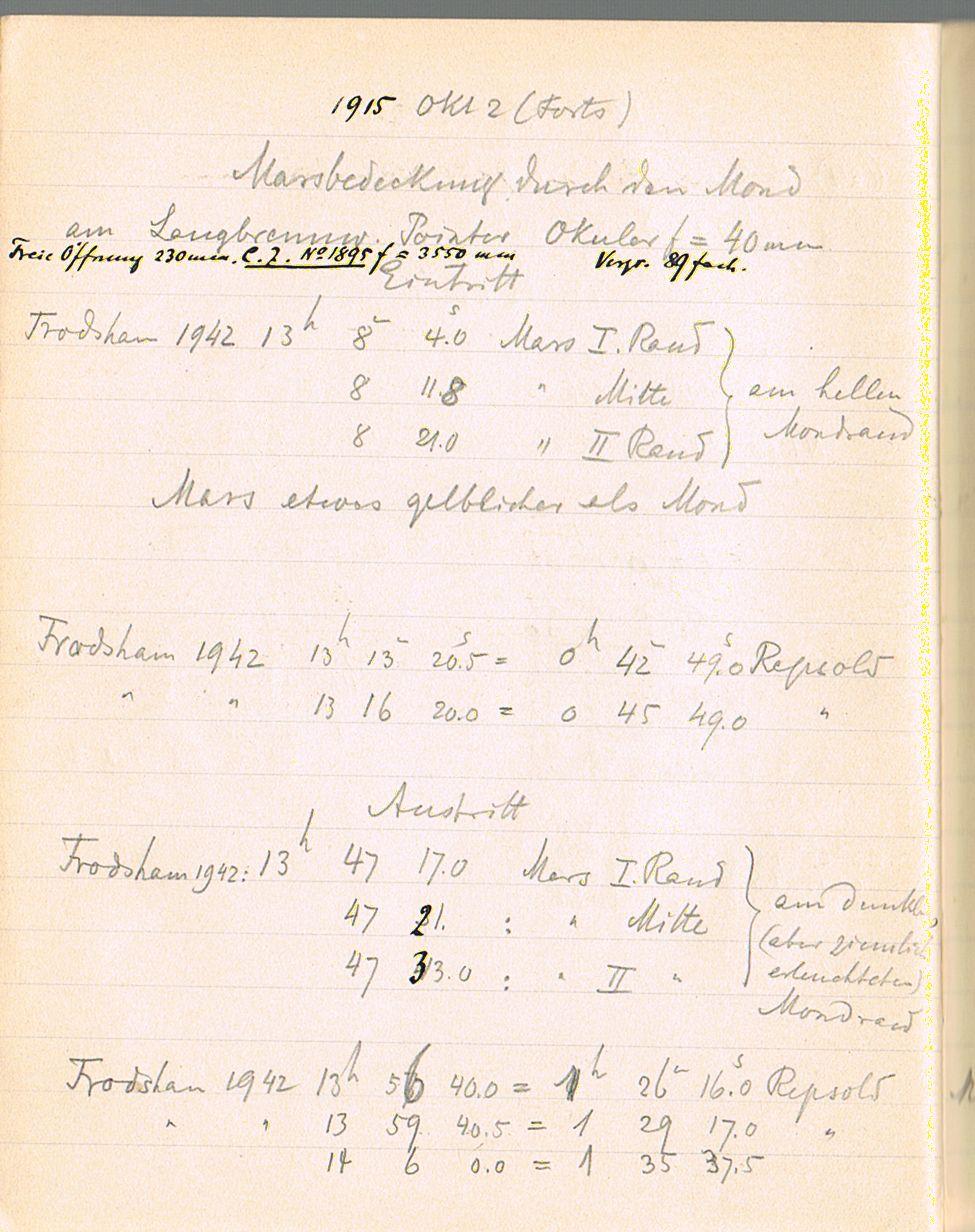 1915 Okt 2 (Forts)
Marsbedeckung durch den Mond
am Langbrenner Pointer Okular f = 40 mm
Freie Öffnung 230 mm. C. Z. No 1895 f = 3550 mm Vergr. 89 fach.
Eintritt
Frodsham 1942 13h 8m 4s.0 Mars I. Rand
8 11.8 " Mitte am hellen
8 21.0 " II Rand Mondrand
Mars etwas gelblicher als Mond
Frodsham 1942 13h 13m 20s.5 = 0h 42m 49s.0 Repsold
" " 13 16 20.0 = 0 45 49.0 "
Austritt
Frodsham 1942: 13h 47 17.0 Mars I. Rand
47 21. : " Mitte am dunkl
47 33.0 : " II " (aber ziemlich
erleuchteten)
Mondrand
Frodsham 1942 13h 56 40.0 = 1h 26m 16s.0 Repsold
" " 13 59 40.5 = 1 29 17.0 "
14 6 0.0 = 1 35 37.5